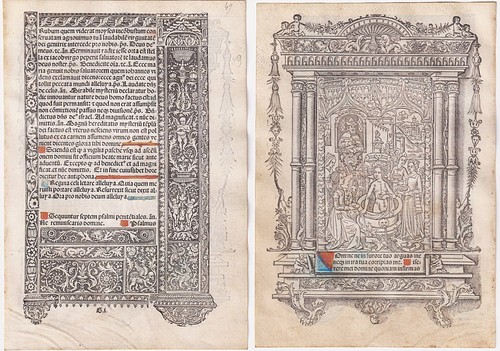 Rubum quem viderat moyses incõbustum con
seruatam agnouimus tuã laudabilẽ virginitatẽ
dei genitrix intercede pro nobis. p̃s. Deus de
meus. ce. añ. Germinauit radix iesse orta est stel
la ex iacob virgo peperit saluatorẽ te laudamus
deus noster. p̃s. Benedicite oĩa. ce. añ. Ecce ma
ria genuit nobis saluatorem quem iohannes vi
dens exclamauit ecce agnus dei ecce qui
tollit peccata mundi alleluya. p̃s. Laudate dñm
de celis. añ. Mirabile mysteriũ declaratur ho
die innouantur nature deus homo factus est id
quod fuit permansit: et quod non erat assumpsit
non cõmixtionẽ passus neqz diuisionẽ. p̃s. Be
dictus dñs de' israel. Ad magnificat. et nũc di
mittis. añ. Magnũ hereditatis mysteriũ tẽplũ
dei factus est vterus nesciens virum non est pol
lutus ex ea carnem assumens omnes gentes ve
nient dicentes gloria tibi domine.
Sciendũ est qz a vigilia pasche vsqz ad ascẽsi
onem domini fit officium beate marie sicut ante
aduentũ. Excepto qz ad benedictus et ad magni
ficat et nũc dimittis. Et in fine cuiuslibet hore
dicitur hec antiphona.
Regina celi letare alleluya. Quia quem me
ruisti portare alleluya. Resurrexit sicut dixit al
leluya. Ora pro nobis deum alleluya.
Sequuntur septem psalmi penitẽtiales. añ.
Ne reminiscaris domine. Psalmus
G.i.
Domine ne in furore tuo arguas me
neqz in ira tua corripias me. Mise
rere mei domine quoniam infirmus